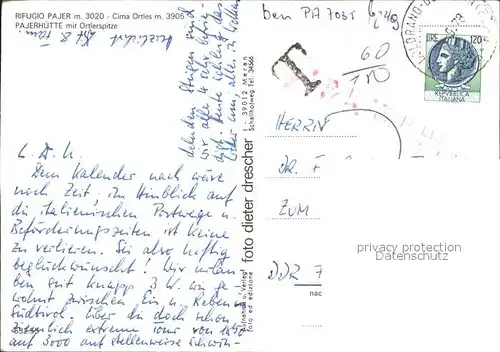 RIFUGIO PAJER m. 3020 - Cima Ortles m. 3905
PAJERHÜTTE mit Ortlerspitze
L. D. U.
Dem Kalender nach wäre
noch Zeit, im Hinblick auf
die italienischen Postwege u.
Beförderungszeiten ist keine
zu verlieren. Sei also heftig
beglückwünscht! Wir urlau-
ben seit knapp 3 W. wie ge-
wohnt zwischen Eis u. Reben
Südtirol. Über die doch schon
ziemlich extreme Tour von 1850
auf 3000 auf stellenweise schwin-
delnden Steigen sind
wir alle 4 sehr
foto dieter drescher
I - 39012 Meran
Schafholweg Tel. 34566
foto ed edizione
60
180
T
LIRE 120
REPVBBLICA
ITALIANA
HERRN
DR. F
ZUM
DDR 7
nac
privacy protection
Datenschutz